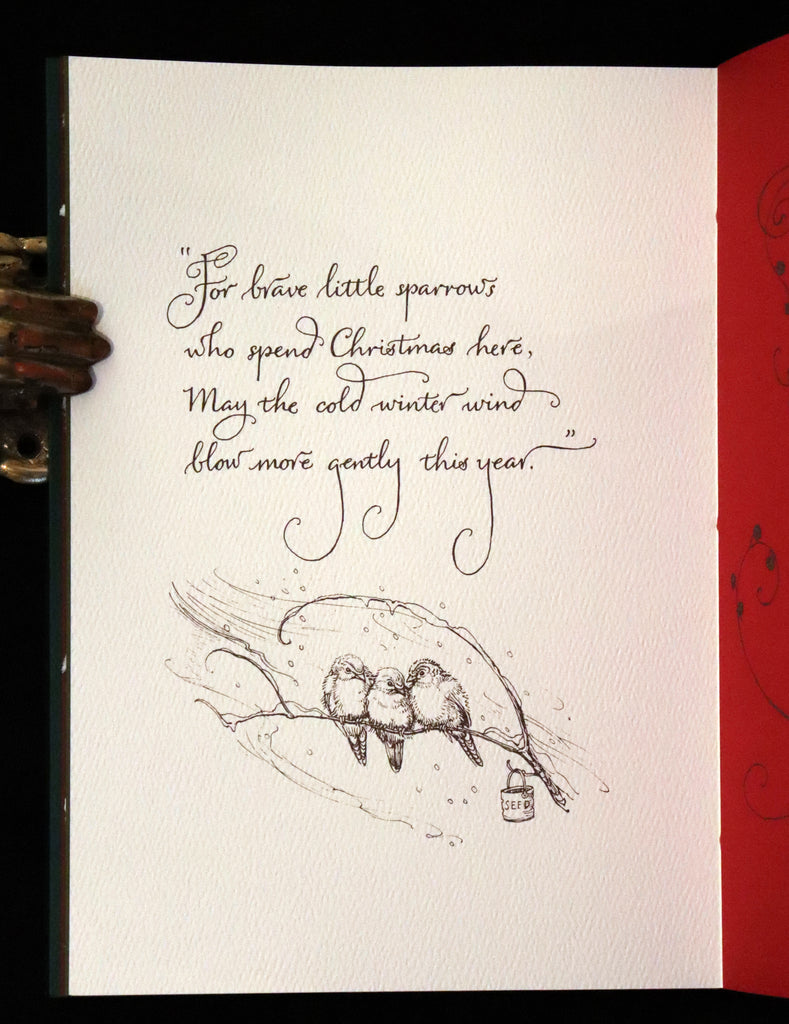 "For brave little sparrows
who spend Christmas here,
May the cold winter wind
blow more gently this year."
SEED